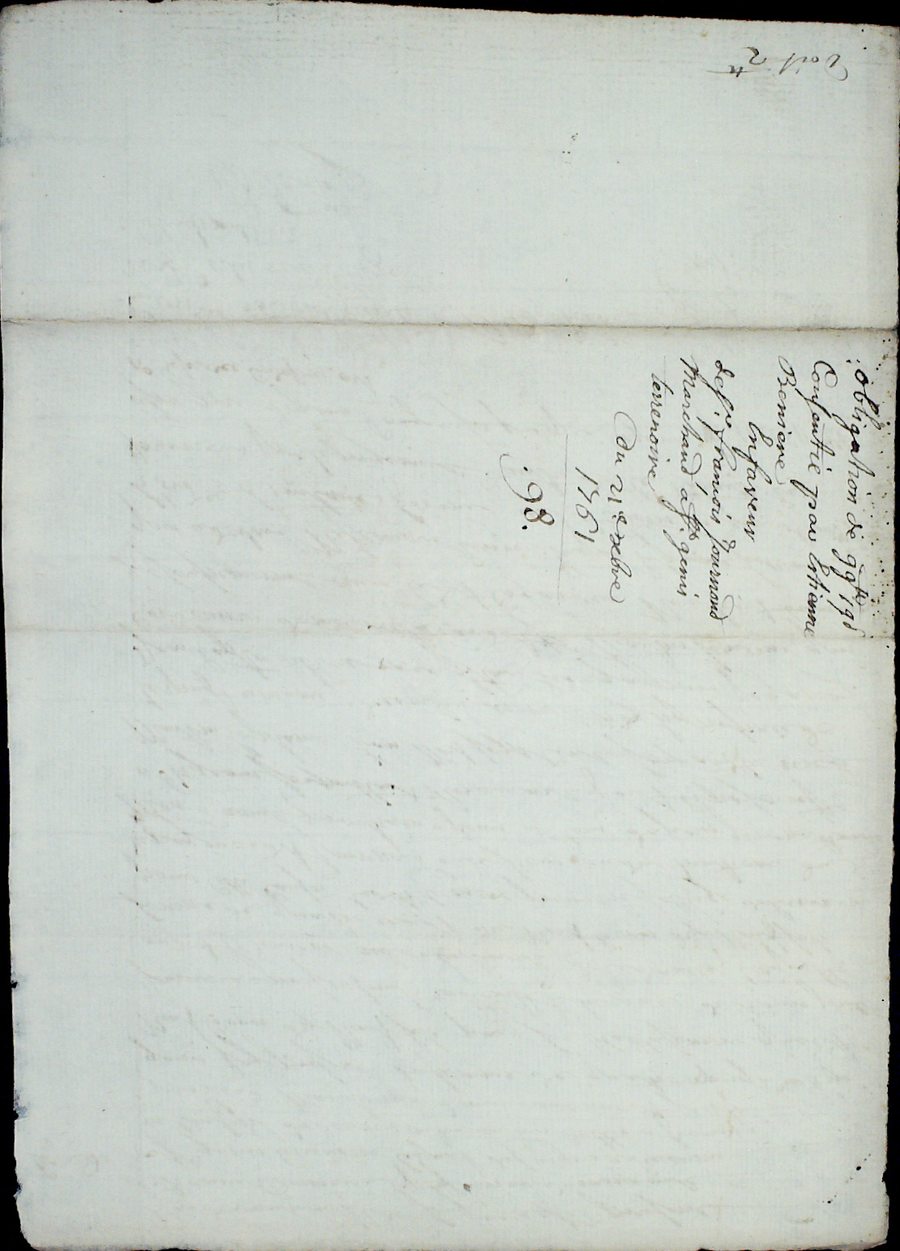 Doit 2ᵗᵗ
obligation de 99ᵗᵗ 19ˢ
Consentie par Estienne
Beniere
Enfaveur
de sʳ. francois fournand
Marchand a Sᵗ genis
terrenoire
Du 21ᵉ xebre
1761
98.